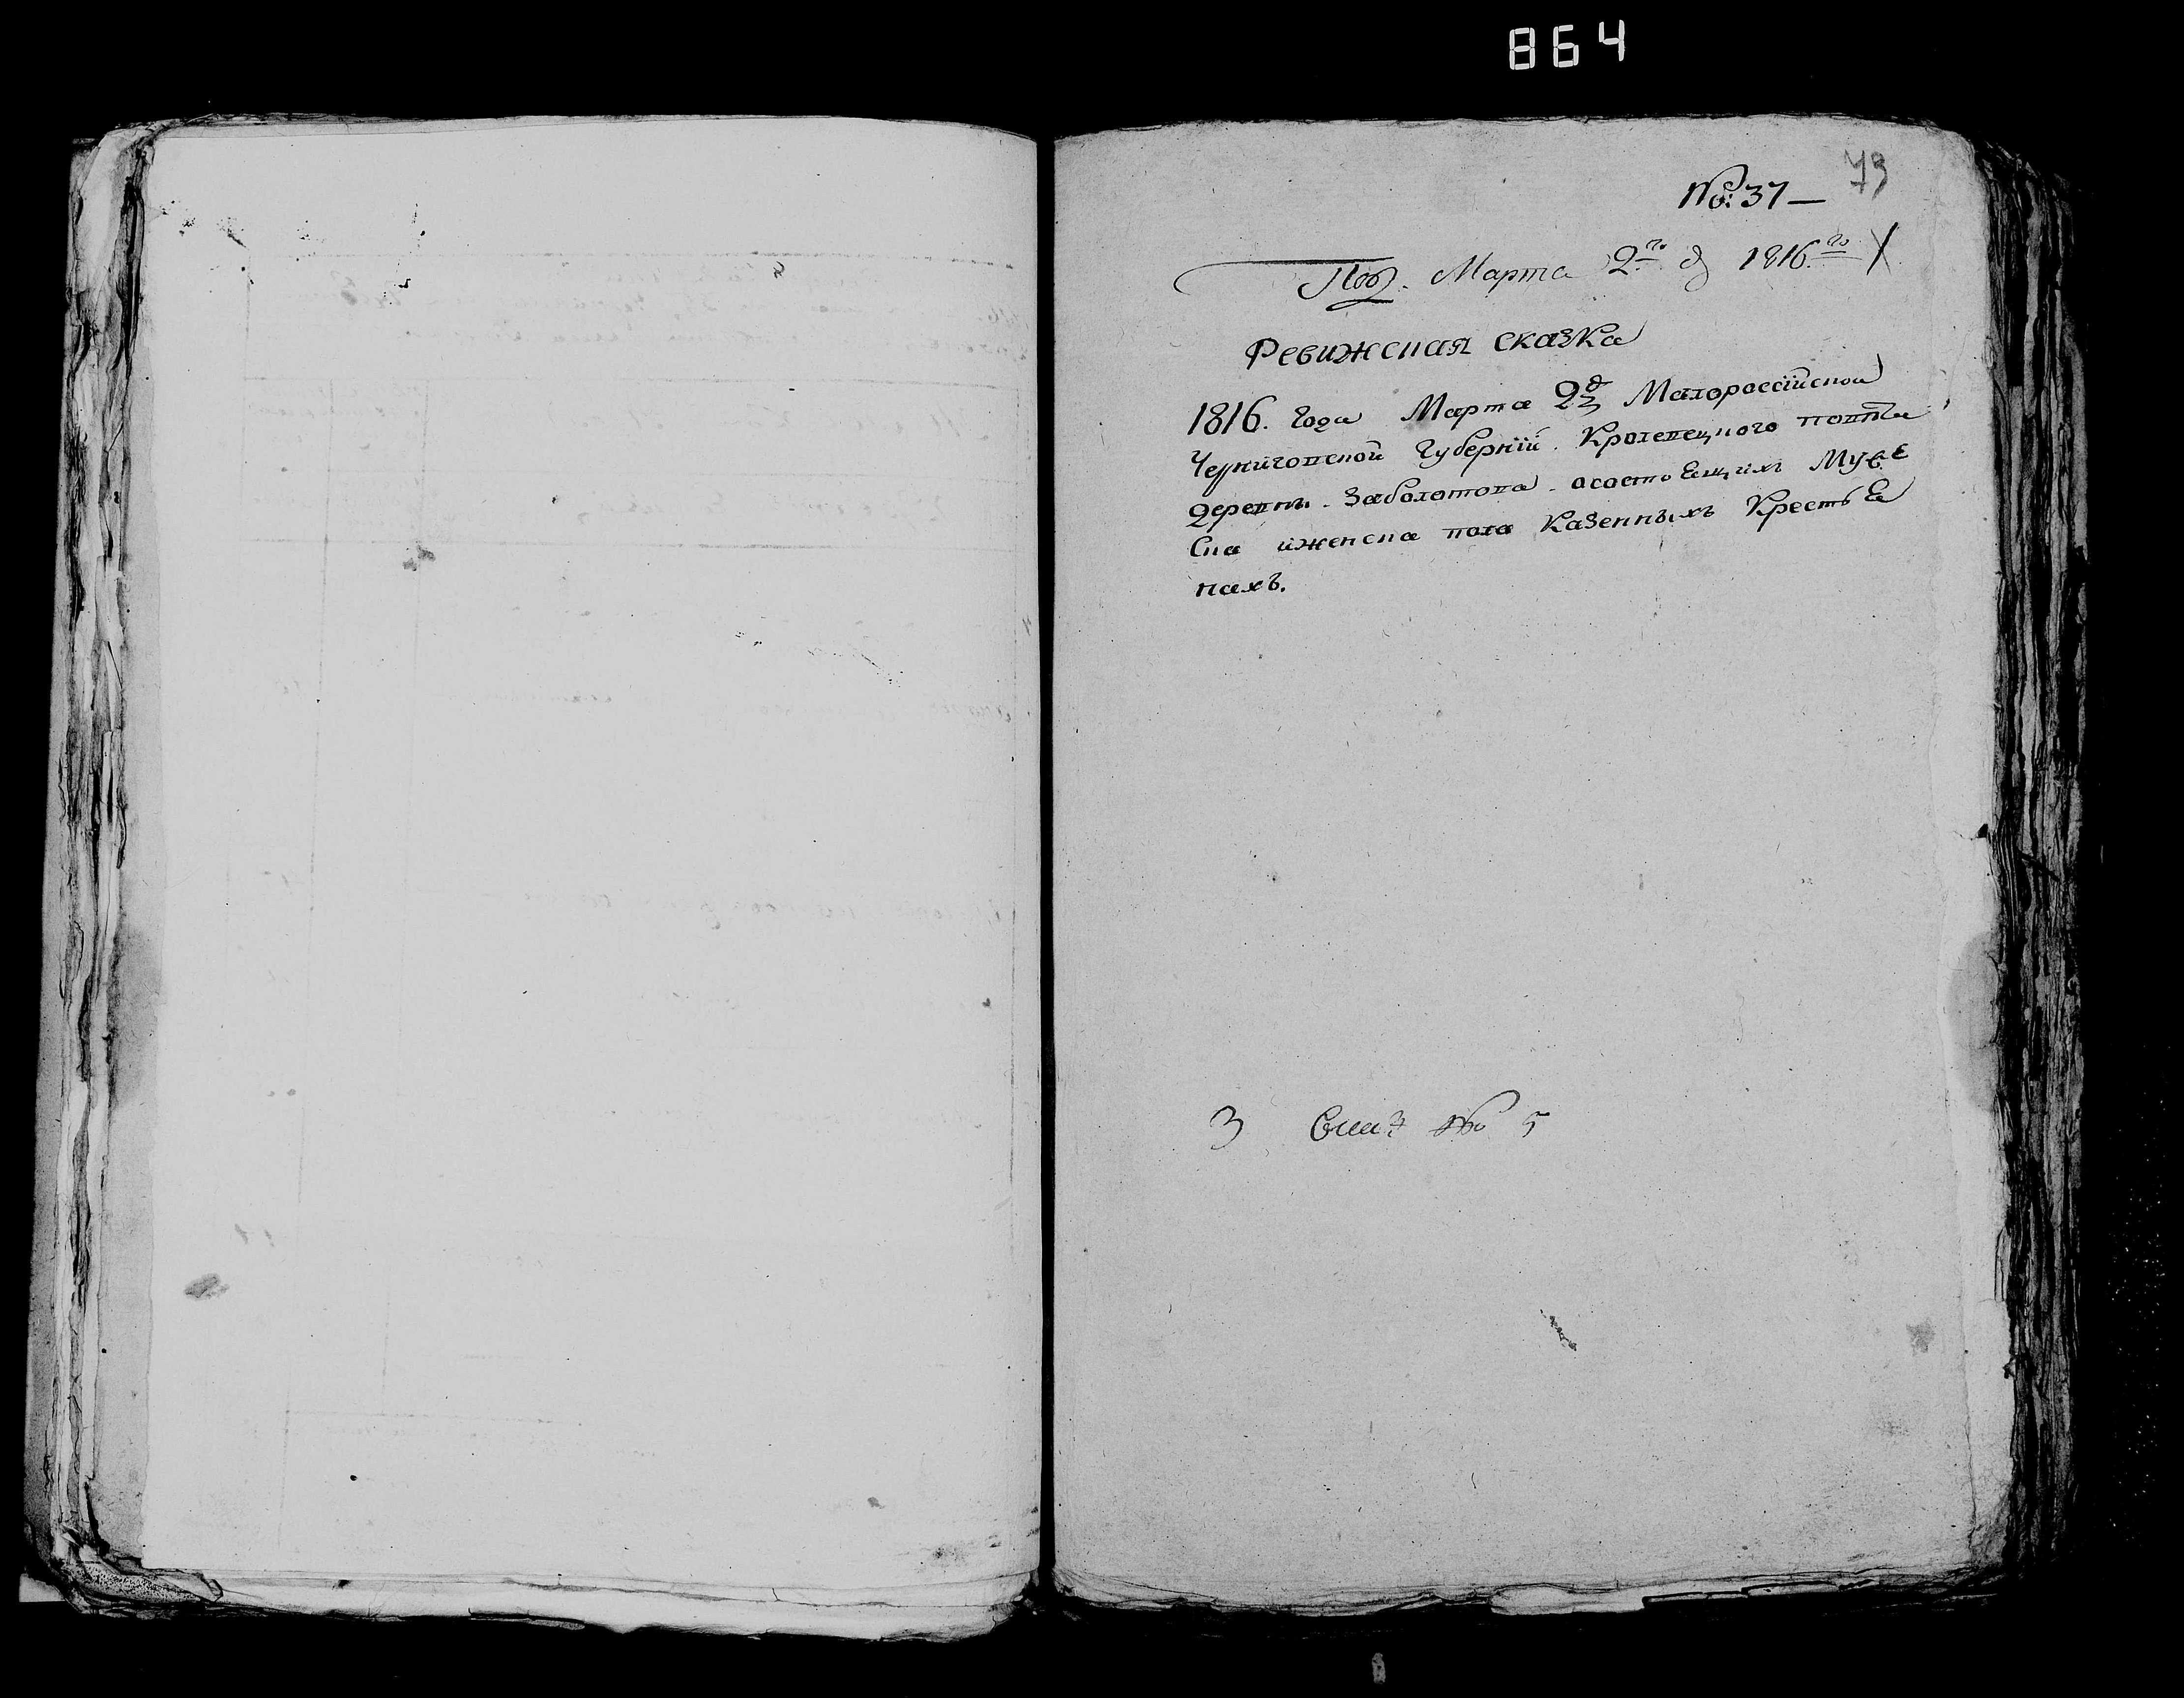 864
73
№: 37 —
Под. Марта 2го д 1816го
Ревижская сказка
1816. года Марта 2д Малороссійской
Черниговской Губерніи. Кролевецкого повѣта
деревнѣ. Заболотова. осостоѣщихъ Муже
Ска иженска пола Казенныхъ Крестьѣ
нахъ.
3 № 5